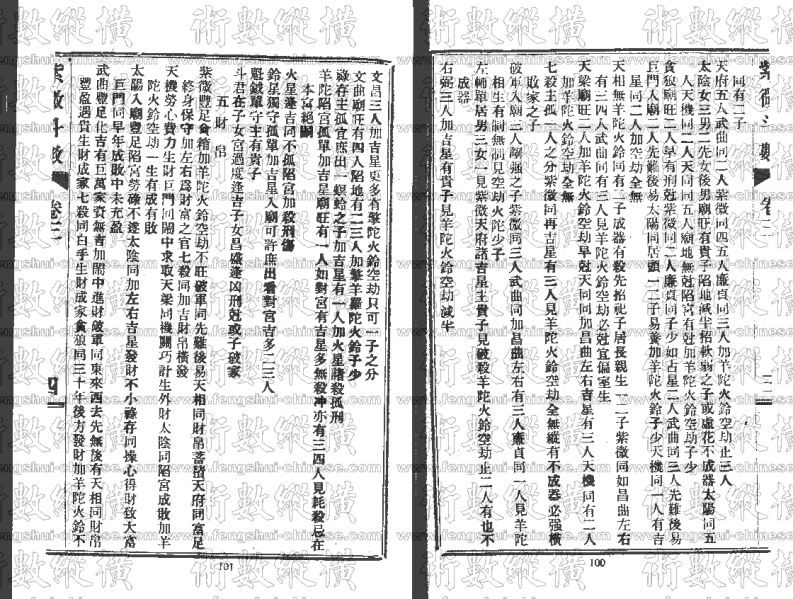 紫微斗數 卷三
同有二子
天府五人武曲同二人紫微同四五人廉貞同三人加羊陀火鈴空劫止三人
太陰女三男二先女後男廟旺有貴子陷地減半招軟弱之子或虛花不成器太陽同五
人天機同二人天同同五人廟地無尅陷宮有尅加羊陀火鈴空劫子少
貪狼廟旺二人早有刑尅紫微同二人廉貞同子少如吉星二人武曲同三人先難後易
巨門入廟二人先難後易太陽同居頭一二子易養加羊陀火鈴子少天機同一人有吉
星同二人加空劫全無
天相無羊陀火鈴同有二子成器有殺先招祀子居長親生一二子紫微同如昌曲左右
有三四人武曲同有三人見羊陀火鈴空劫必尅宜偏室生
天梁廟旺二人加羊陀火鈴空劫早尅天同同加昌曲左右吉星有三人天機同有二人
加羊陀火鈴空劫全無
七殺主孤一人之分紫微同再吉星有三人見羊陀火鈴空劫全無縱有不成器必强橫
敗家之子
破軍入廟三人剛强之子紫微同三人武曲同加昌曲左右有三人廉貞同一人見羊陀
相生有制無制見火陀少子
左輔單居男三女一見紫微天府諸吉星主貴子見破殺羊陀火鈴空劫止二人有也不
成器
右弼三人加吉星有貴子見羊陀火鈴空劫減半
100
文昌三人加吉星更多有擎陀火鈴空劫只可一子之分
文曲廟旺有四人陷地有二三人加擎羊羅陀火鈴子少
祿存主孤宜庶出一螟蛉之子加吉星有一人加火星諸殺孤刑
羊陀陷宮孤單加吉星廟旺有一人如對宮有吉星多無殺冲亦有三四人見耗殺忌在
本宮絕嗣
火星逢吉同不孤陷宮加殺刑傷
鈴星獨守孤單加吉星入廟可許庶出看對宮吉多二三人
魁鉞單守主有貴子
斗君在子女宮過度逢吉子女昌盛逢凶刑尅或子破家
五 財帛
紫微豐足倉箱加羊陀火鈴空劫不旺破軍同先難後易天相同財帛蓄積天府同富足
終身保守加左右爲財富之官七殺同加吉財帛橫發
天機勞心費力生財巨門同鬧中求取天梁同機關巧計生外財太陰同陷宮成敗加羊
陀火鈴空劫一生有成有敗
太陽入廟豐足陷宮勞碌不遂太陰同加左右吉星發財不小祿存同操心得財致大富
巨門同早年成敗中未充盈
武曲豐足化吉有巨萬家資無吉加鬧中進財破軍同東來西去先無後有天相同財帛
豐盈遇貴生財成家七殺同白手生財成家貪狼同三十年後方發財加羊陀火鈴不
紫微斗數 卷三 四
101
術數縱橫
www.fengshui-chinese.com